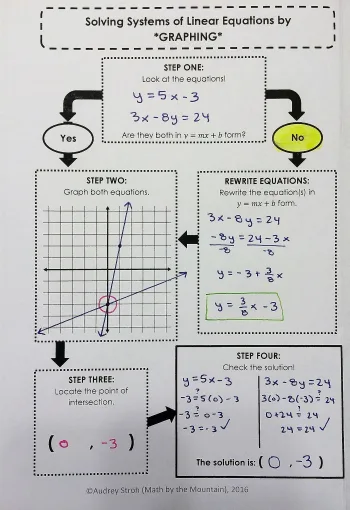 Solving Systems of Linear Equations by
*GRAPHING*
STEP ONE:
Look at the equations!
y = 5x - 3
3x - 8y = 24
Are they both in y = mx + b form?
Yes
No
STEP TWO:
Graph both equations.
REWRITE EQUATIONS:
Rewrite the equation(s) in
y = mx + b form.
3x - 8y = 24
-8y = 24 - 3x
-8 -8
y = -3 + 3/8 x
y = 3/8 x - 3
STEP THREE:
Locate the point of
intersection.
(0, -3)
STEP FOUR:
Check the solution!
y = 5x - 3
-3 ?= 5(0) - 3
-3 ?= 0 - 3
-3 = -3 ✓
3x - 8y = 24
3(0) - 8(-3) ?= 24
0 + 24 ?= 24
24 = 24 ✓
The solution is: (0, -3)
©Audrey Stroh (Math by the Mountain), 2016